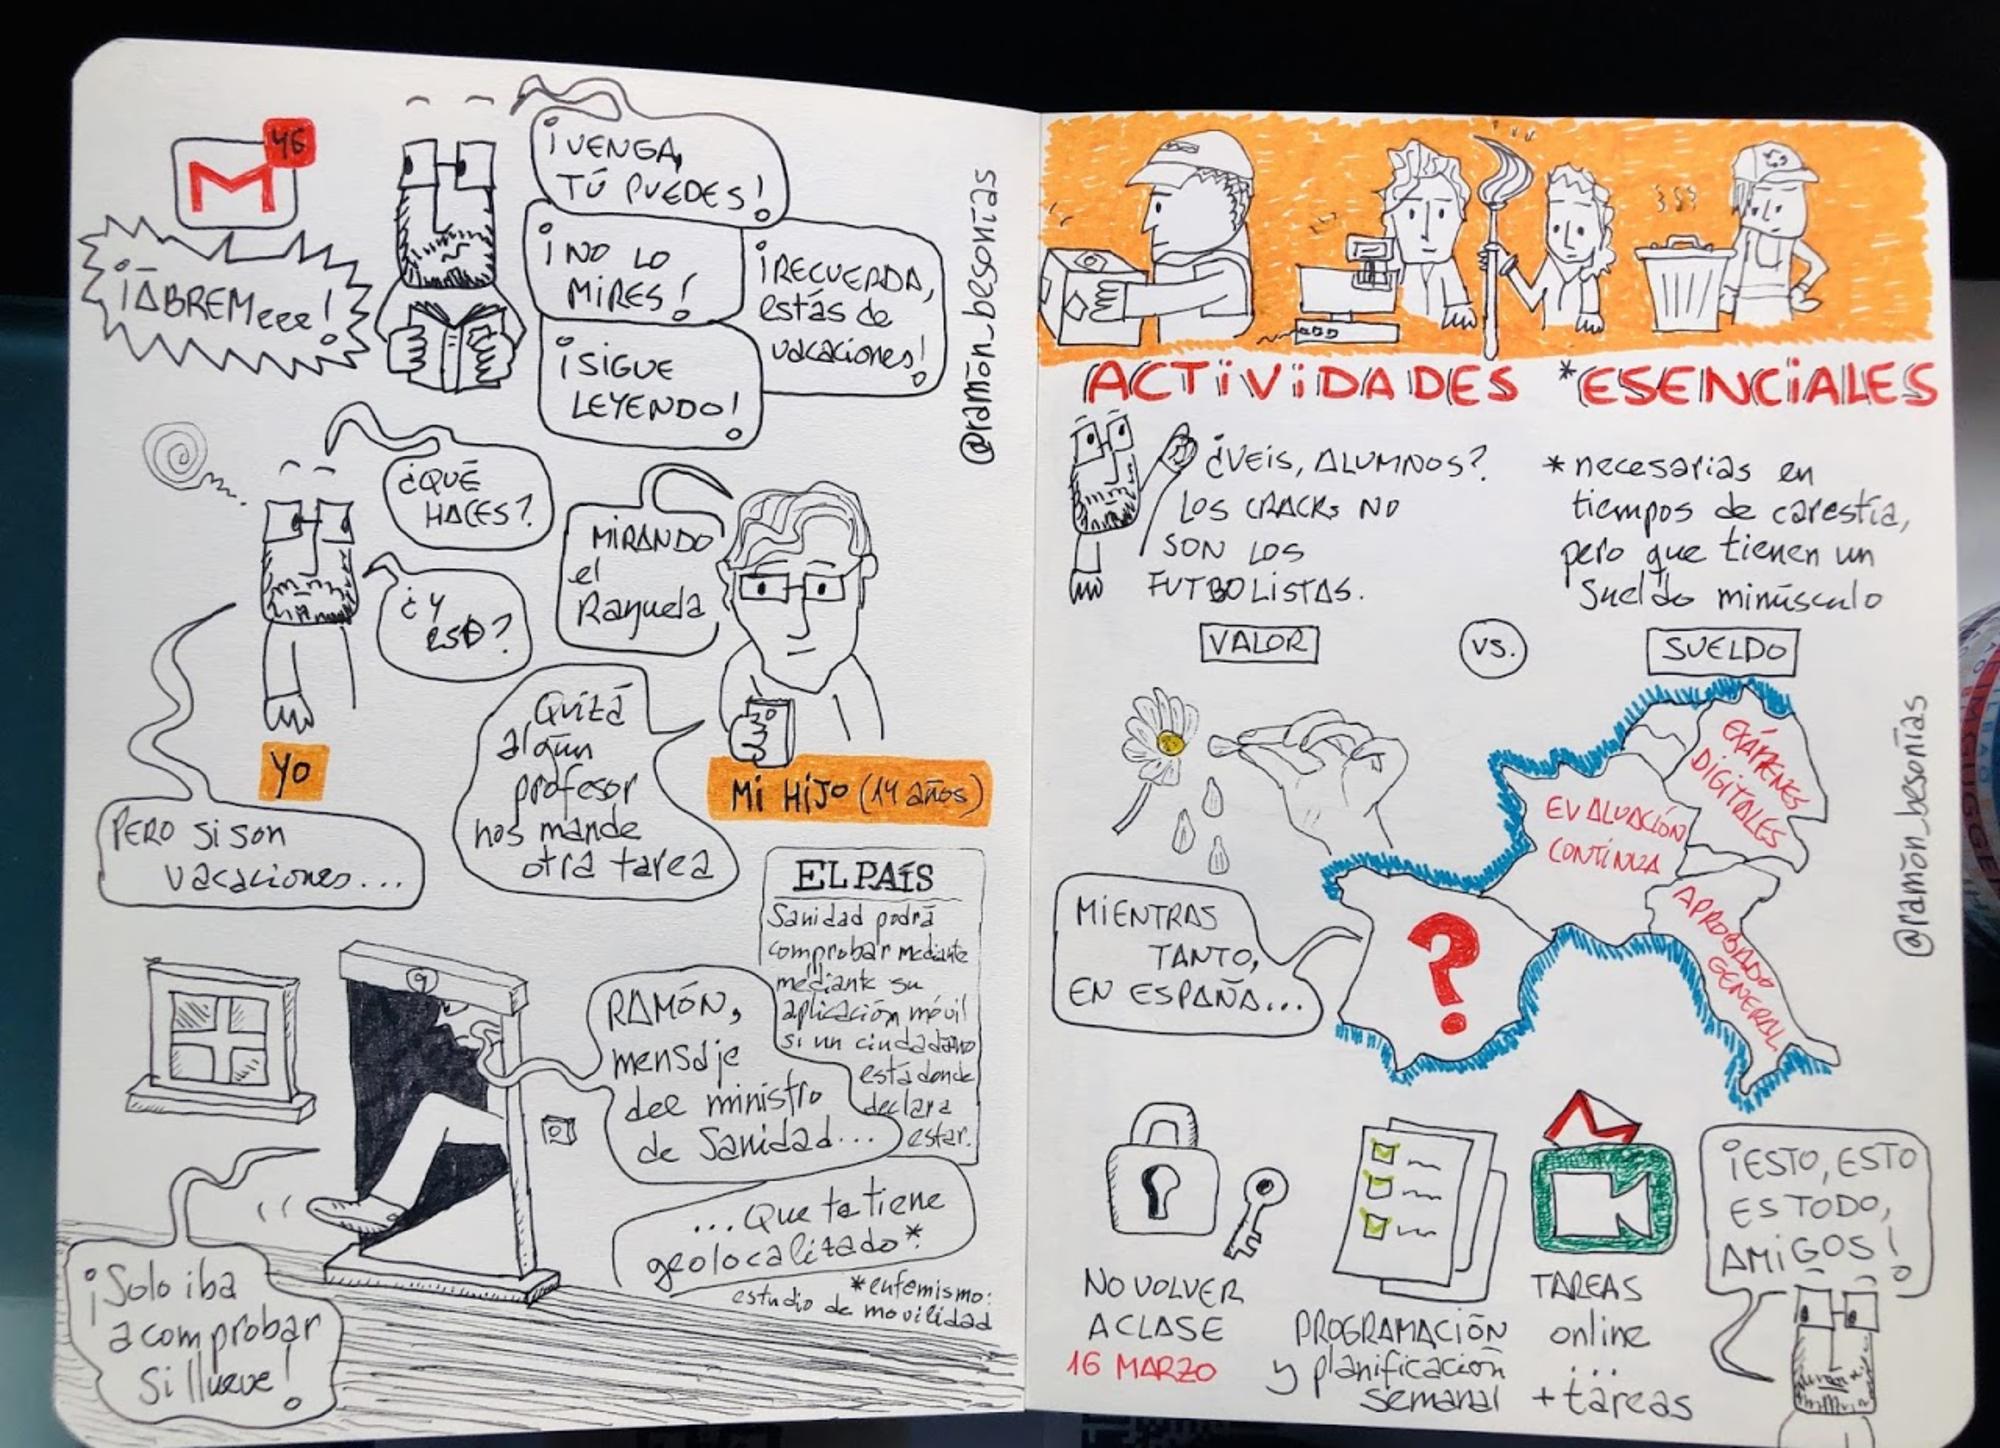 46
¡ABREMeee!
¡VENGA,
TÚ PUEDES!
¡NO LO
MIRES!
¡RECUERDA,
estás de
vacaciones!
¡SIGUE
LEYENDO!
@ramón_besonías
¿QUÉ
HACES?
MIRANDO
el
Rayuela
¿Y
ESO?
Quizá
algún
profesor
nos mande
otra tarea
YO
MI HIJO (14 años)
PERO SI SON
vacaciones...
EL PAÍS
Sanidad podrá
comprobar mediante
mediante su
aplicación móvil
si un ciudadano
está donde
declara
estar.
9
RAMÓN,
mensaje
del ministro
de Sanidad...
...Que te tiene
geolocalizado*
*eufemismo:
estudio de movilidad
¡Solo iba
a comprobar
si llueve!
ACTIVIDADES *ESENCIALES
¿VEIS, ALUMNOS?
LOS CRACKs NO
SON LOS
FUTBOLISTAS.
*necesarias en
tiempos de carestía,
pero que tienen un
sueldo minúsculo
VALOR
VS.
SUELDO
EXÁMENES
DIGITALES
EVALUACIÓN
CONTINUA
APROBADO
GENERAL
MIENTRAS
TANTO,
EN ESPAÑA...
?
@ramón_besonías
NO VOLVER
A CLASE
16 MARZO
PROGRAMACIÓN
y planificación
semanal
TAREAS
online
...
+ tareas
¡ESTO, ESTO
ES TODO,
AMIGOS!